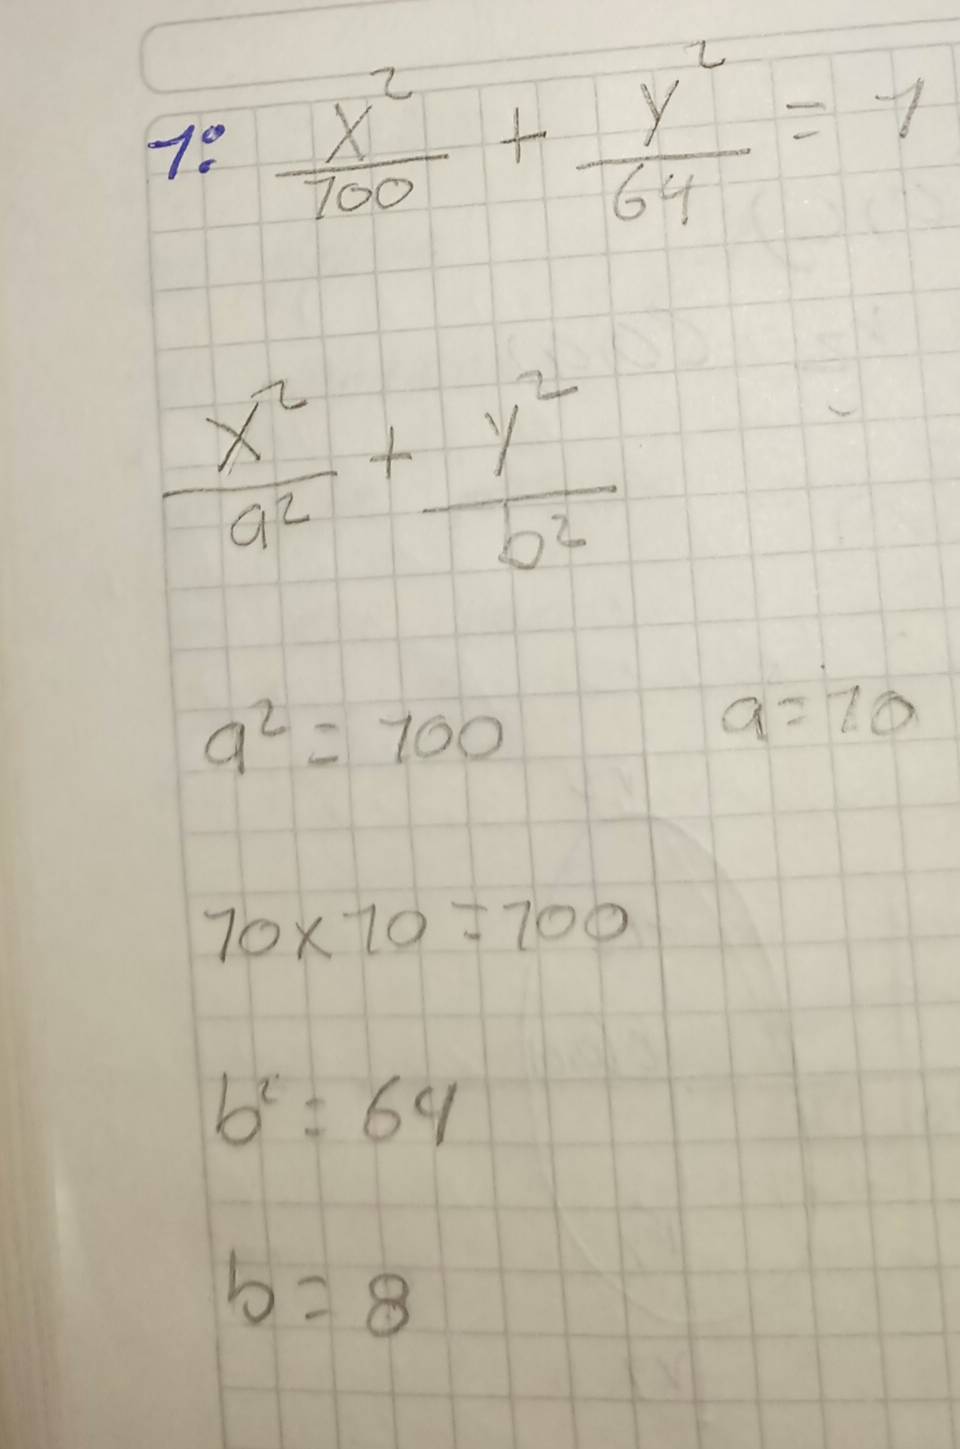 1: x²/100 + y²/64 = 1
x²/a² + y²/b²
a² = 100 a = 10
10 x 10 = 100
b² = 64
b = 8